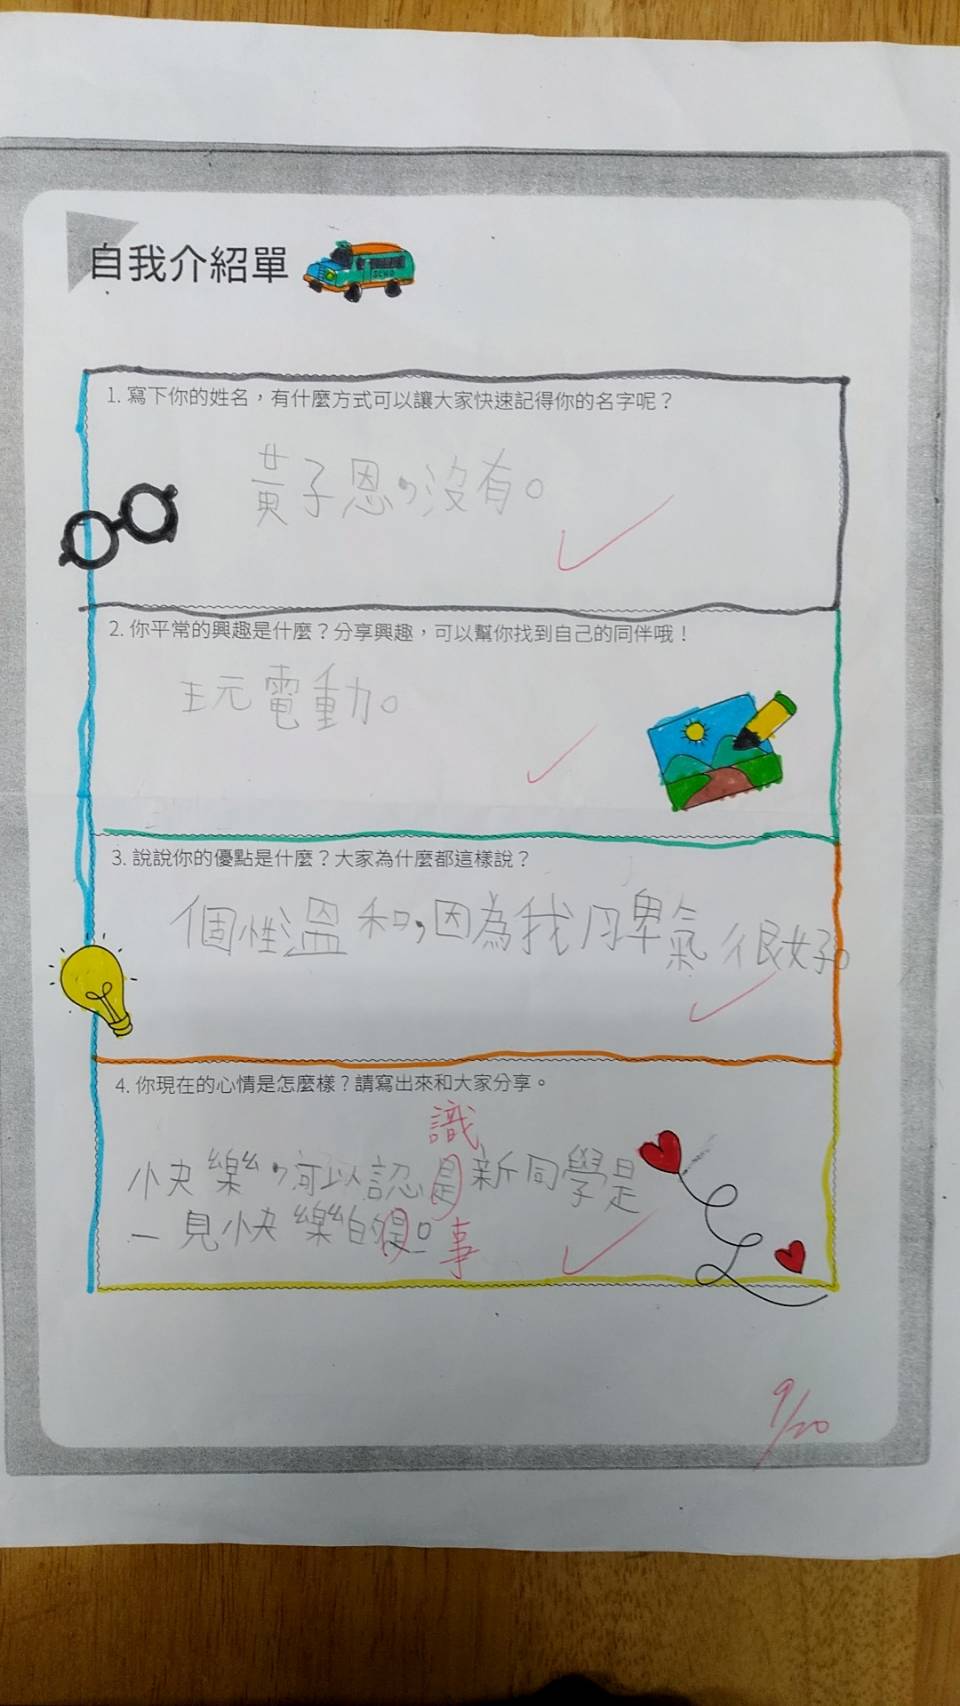 自我介紹單
SCHO
1. 寫下你的姓名，有什麼方式可以讓大家快速記得你的名字呢？
黃子恩，沒有。
2. 你平常的興趣是什麼？分享興趣，可以幫你找到自己的同伴哦！
玩電動。
3. 說說你的優點是什麼？大家為什麼都這樣說？
個性溫和，因為我脾氣很好。
4. 你現在的心情是怎麼樣？請寫出來和大家分享。
識
快樂，可以認是新同學是
一見快樂的是。
事
9/20